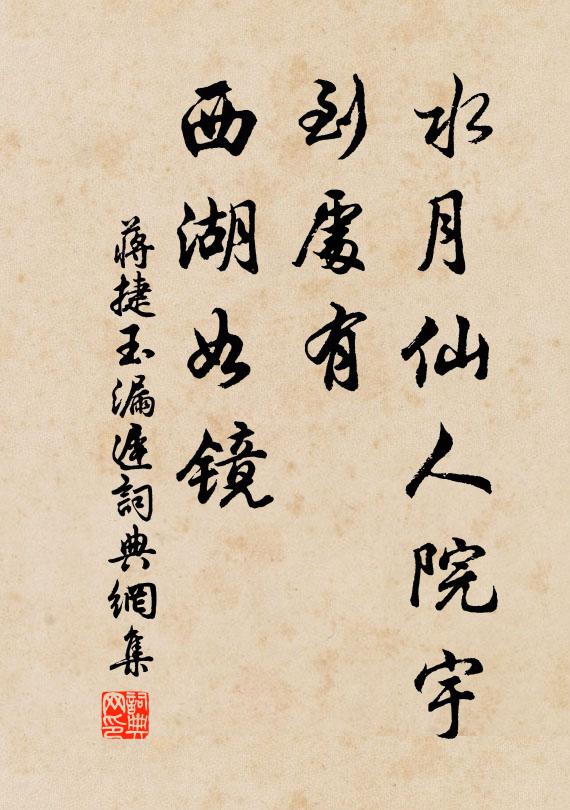 水月仙人院宇
到處有
西湖如鏡
蔣捷玉漏遲詞典網集
詞典網印